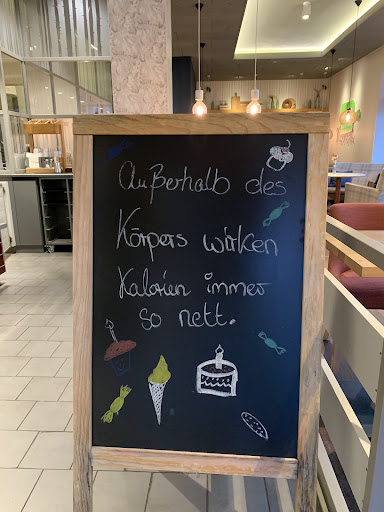 Außerhalb des
Körpers wirken
Kalorien immer
so nett.